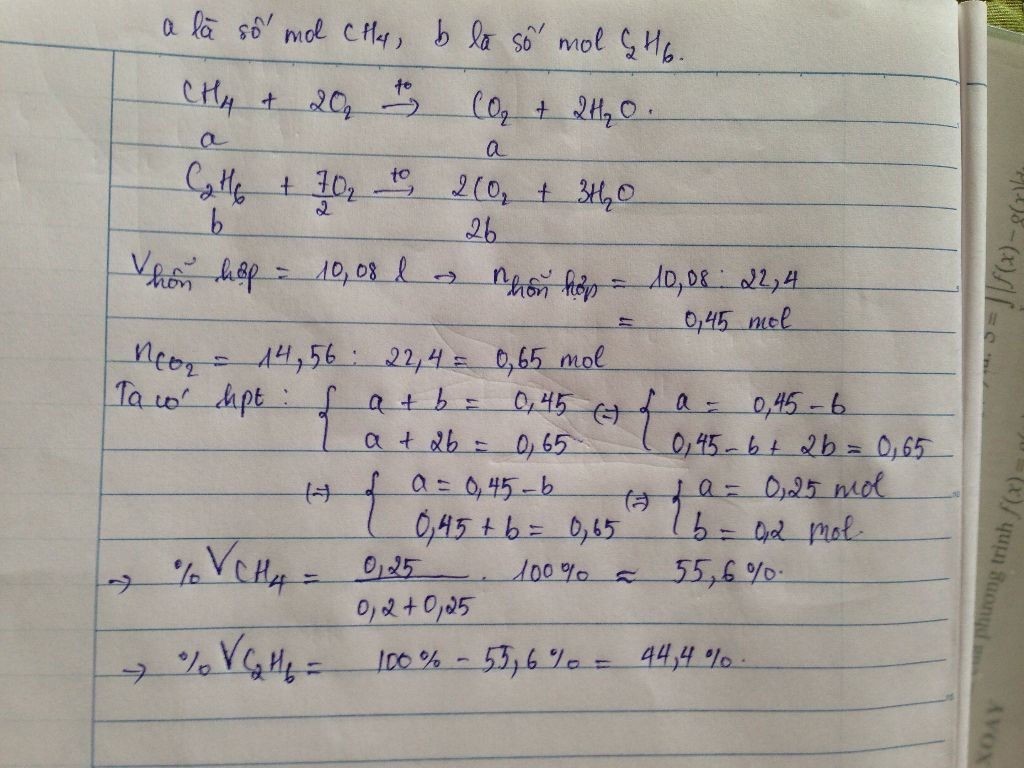 a là số mol CH4, b là số mol C2H6.
CH4 + 2O2 →(to) CO2 + 2H2O.
a a
C2H6 + 7/2O2 →(to) 2CO2 + 3H2O
b 2b
Vhỗn hợp = 10,08 l → nhỗn hợp = 10,08 : 22,4
= 0,45 mol
nCO2 = 14,56 : 22,4 = 0,65 mol
Ta có hpt : { a + b = 0,45 (=) { a = 0,45 - b
a + 2b = 0,65 0,45 - b + 2b = 0,65
(=) { a = 0,45 - b (=) { a = 0,25 mol
0,45 + b = 0,65 b = 0,2 mol.
→ %VCH4 = 0,25 . 100% ≈ 55,6%.
0,2 + 0,25
→ %VC2H6 = 100% - 55,6% = 44,4%.
phương trình f(x) =
XOAY